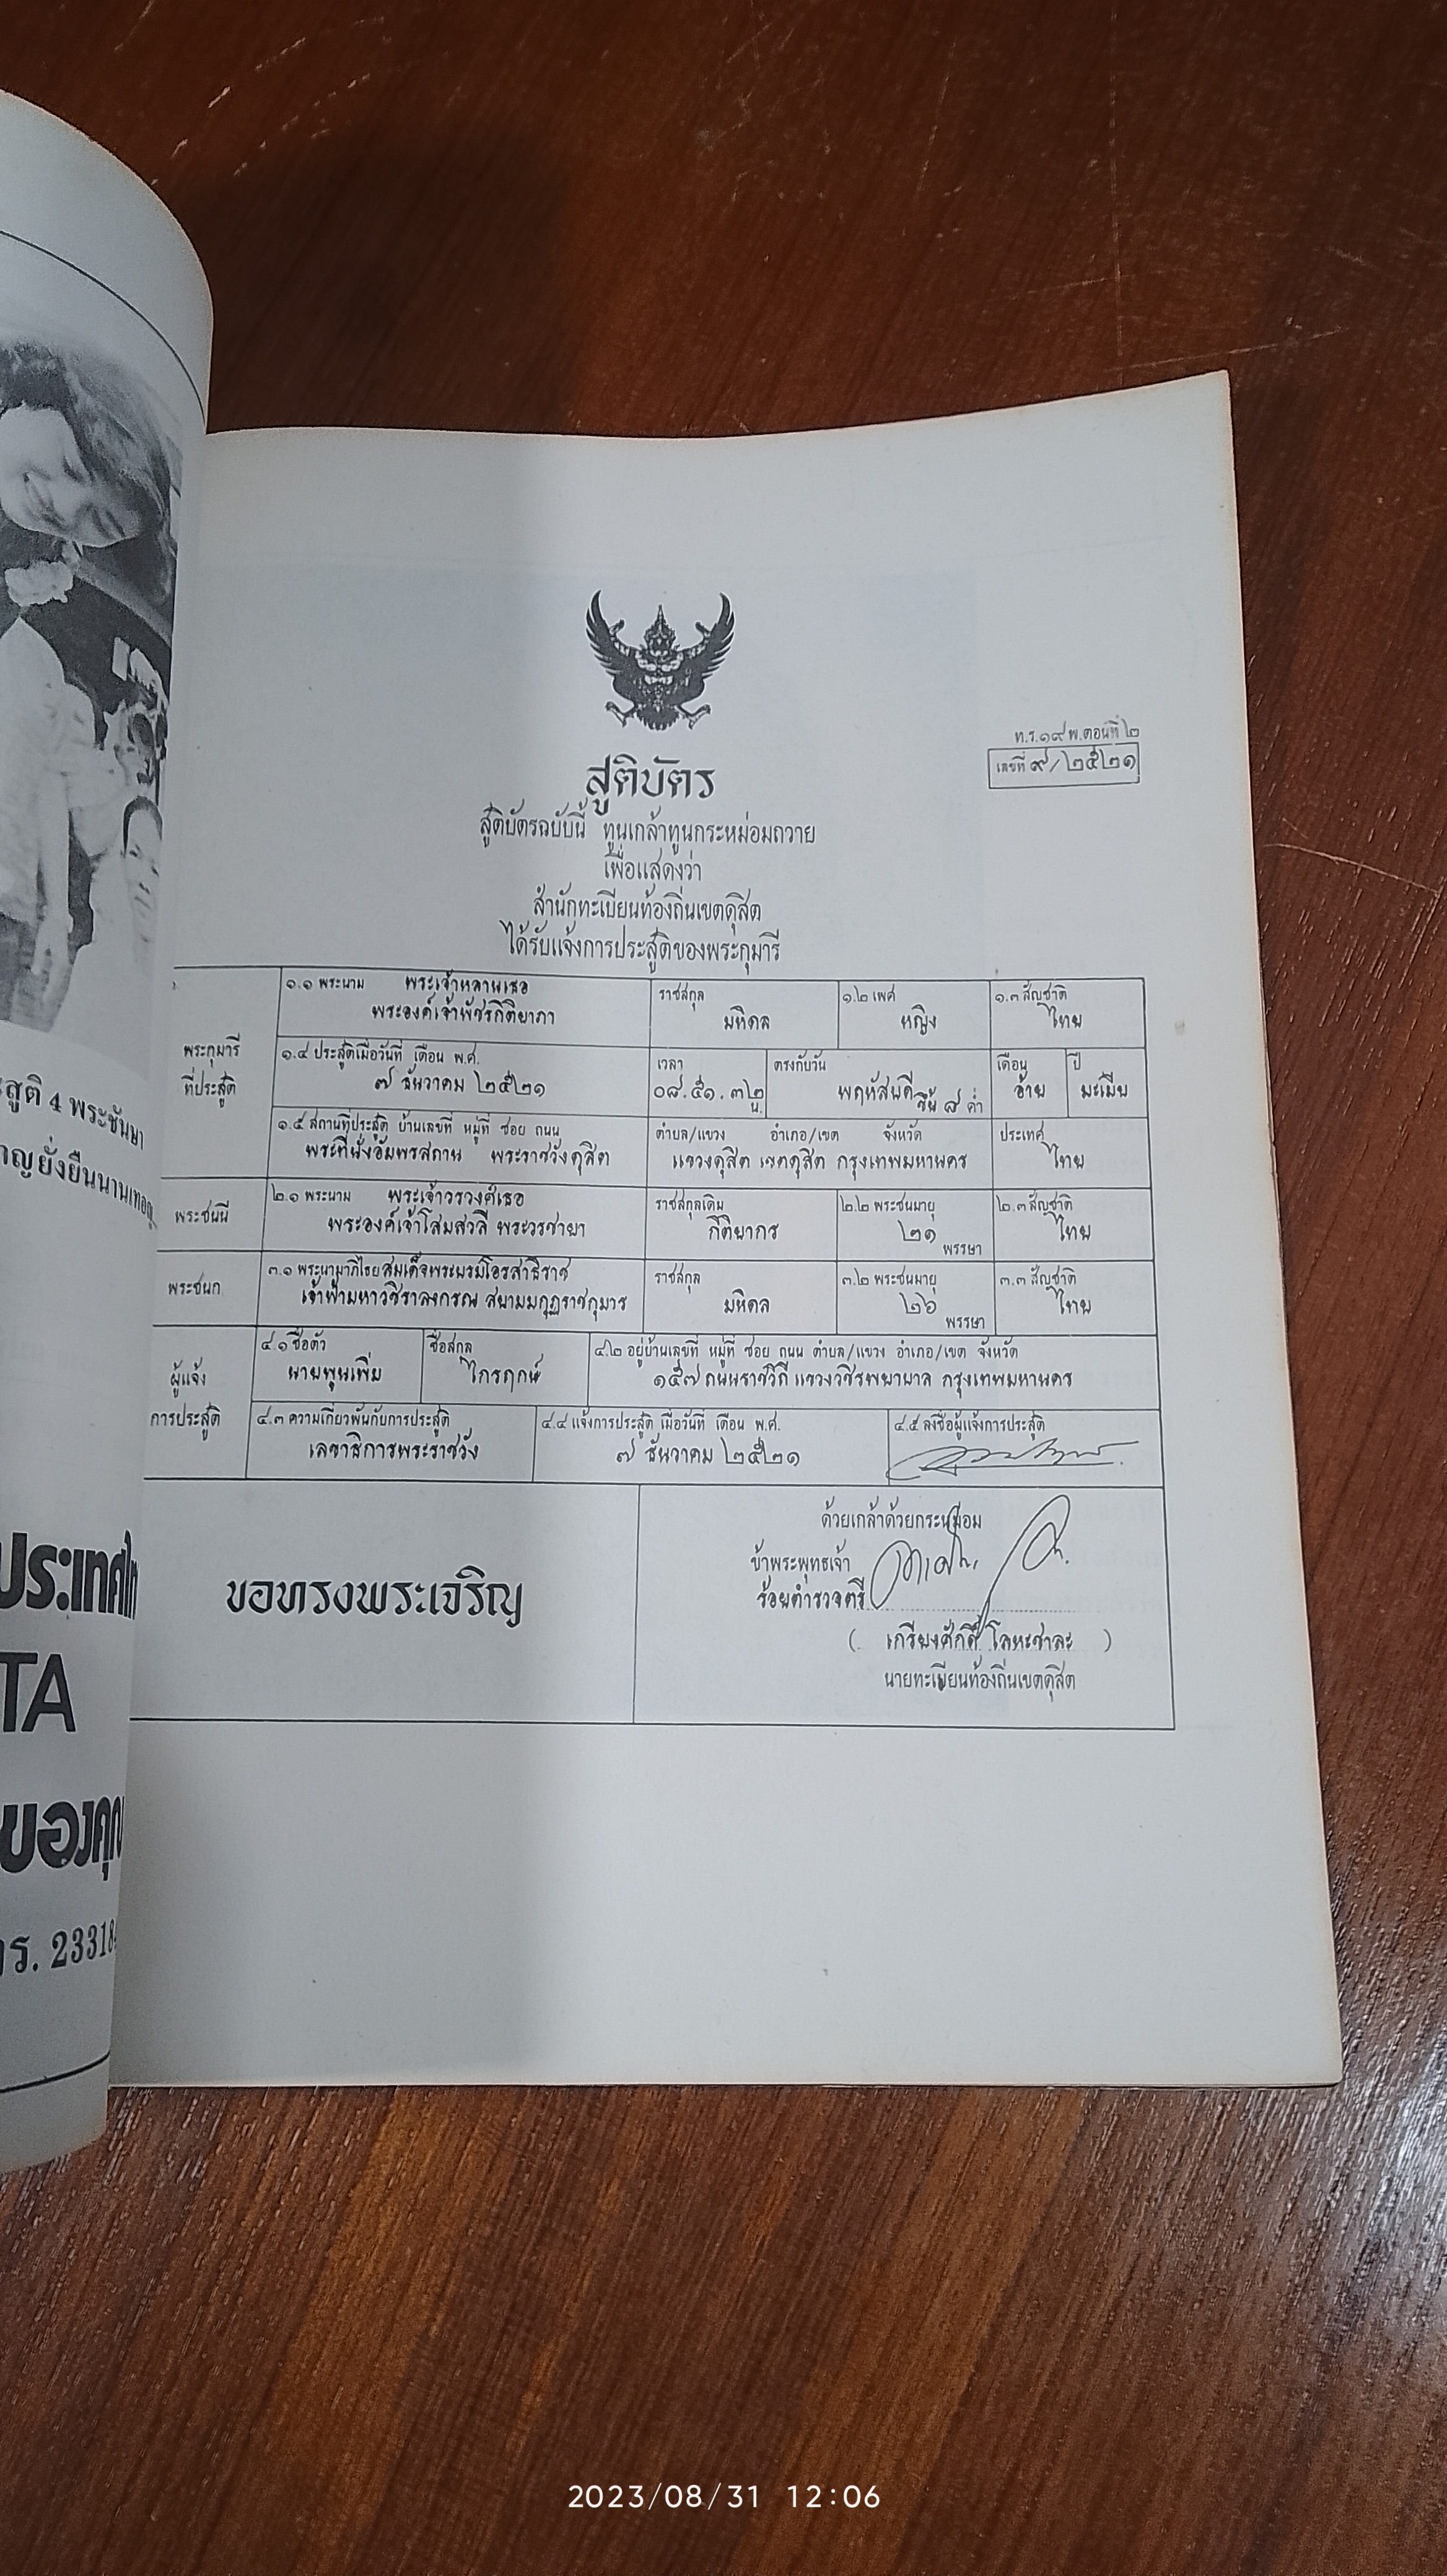 สูติ 4 พระชันษา
ญยั่งยืนนานเทอญ
ประเทศไท
TA
ของคุณ
ทร. 23318
ท.ร.๑๙ พ.ตอนที่ ๒
เลขที่ ๙/๒๕๒๑
สูติบัตร
สูติบัตรฉบับนี้ ทูนเกล้าทูนกระหม่อมถวาย
เพื่อแสดงว่า
สำนักทะเบียนท้องถิ่นเขตดุสิต
ได้รับแจ้งการประสูติของพระกุมารี
พระกุมารี
ที่ประสูติ
๑.๑ พระนาม พระเจ้าหลานเธอ
พระองค์เจ้าพัชรกิติยาภา
ราชสกุล
มหิดล
๑.๒ เพศ
หญิง
๑.๓ สัญชาติ
ไทย
๑.๔ ประสูติเมื่อวันที่ เดือน พ.ศ.
๗ ธันวาคม ๒๕๒๑
เวลา
๐๘.๕๑.๓๒ น.
ตรงกับวัน
พฤหัสบดี ขึ้น ๘ ค่ำ
เดือน
อ้าย
ปี
มะเมีย
๑.๕ สถานที่ประสูติ บ้านเลขที่ หมู่ที่ ซอย ถนน
พระที่นั่งอัมพรสถาน พระราชวังดุสิต
ตำบล/แขวง อำเภอ/เขต จังหวัด
แขวงดุสิต เขตดุสิต กรุงเทพมหานคร
ประเทศ
ไทย
พระชนนี
๒.๑ พระนาม พระเจ้าวรวงศ์เธอ
พระองค์เจ้าโสมสวลี พระวรชายา
ราชสกุลเดิม
กิติยากร
๒.๒ พระชนมายุ
๒๑
พรรษา
๒.๓ สัญชาติ
ไทย
พระชนก
๓.๑ พระนามาภิไธย สมเด็จพระบรมโอรสาธิราช
เจ้าฟ้ามหาวชิราลงกรณ สยามมกุฎราชกุมาร
ราชสกุล
มหิดล
๓.๒ พระชนมายุ
๒๖
พรรษา
๓.๓ สัญชาติ
ไทย
ผู้แจ้ง
การประสูติ
๔.๑ ชื่อตัว
นายพูนเพิ่ม
ชื่อสกุล
ไกรฤกษ์
๔.๒ อยู่บ้านเลขที่ หมู่ที่ ซอย ถนน ตำบล/แขวง อำเภอ/เขต จังหวัด
๑๕๗ ถนนราชวิถี แขวงวชิรพยาบาล กรุงเทพมหานคร
๔.๓ ความเกี่ยวพันกับการประสูติ
เลขาธิการพระราชวัง
๔.๔ แจ้งการประสูติ เมื่อวันที่ เดือน พ.ศ.
๗ ธันวาคม ๒๕๒๑
๔.๕ ลงชื่อผู้แจ้งการประสูติ
ขอทรงพระเจริญ
ด้วยเกล้าด้วยกระหม่อม
ข้าพระพุทธเจ้า
ร้อยตำรวจตรี
( เกรียงศักดิ์ โลหะชาละ )
นายทะเบียนท้องถิ่นเขตดุสิต
2023/08/31 12:06